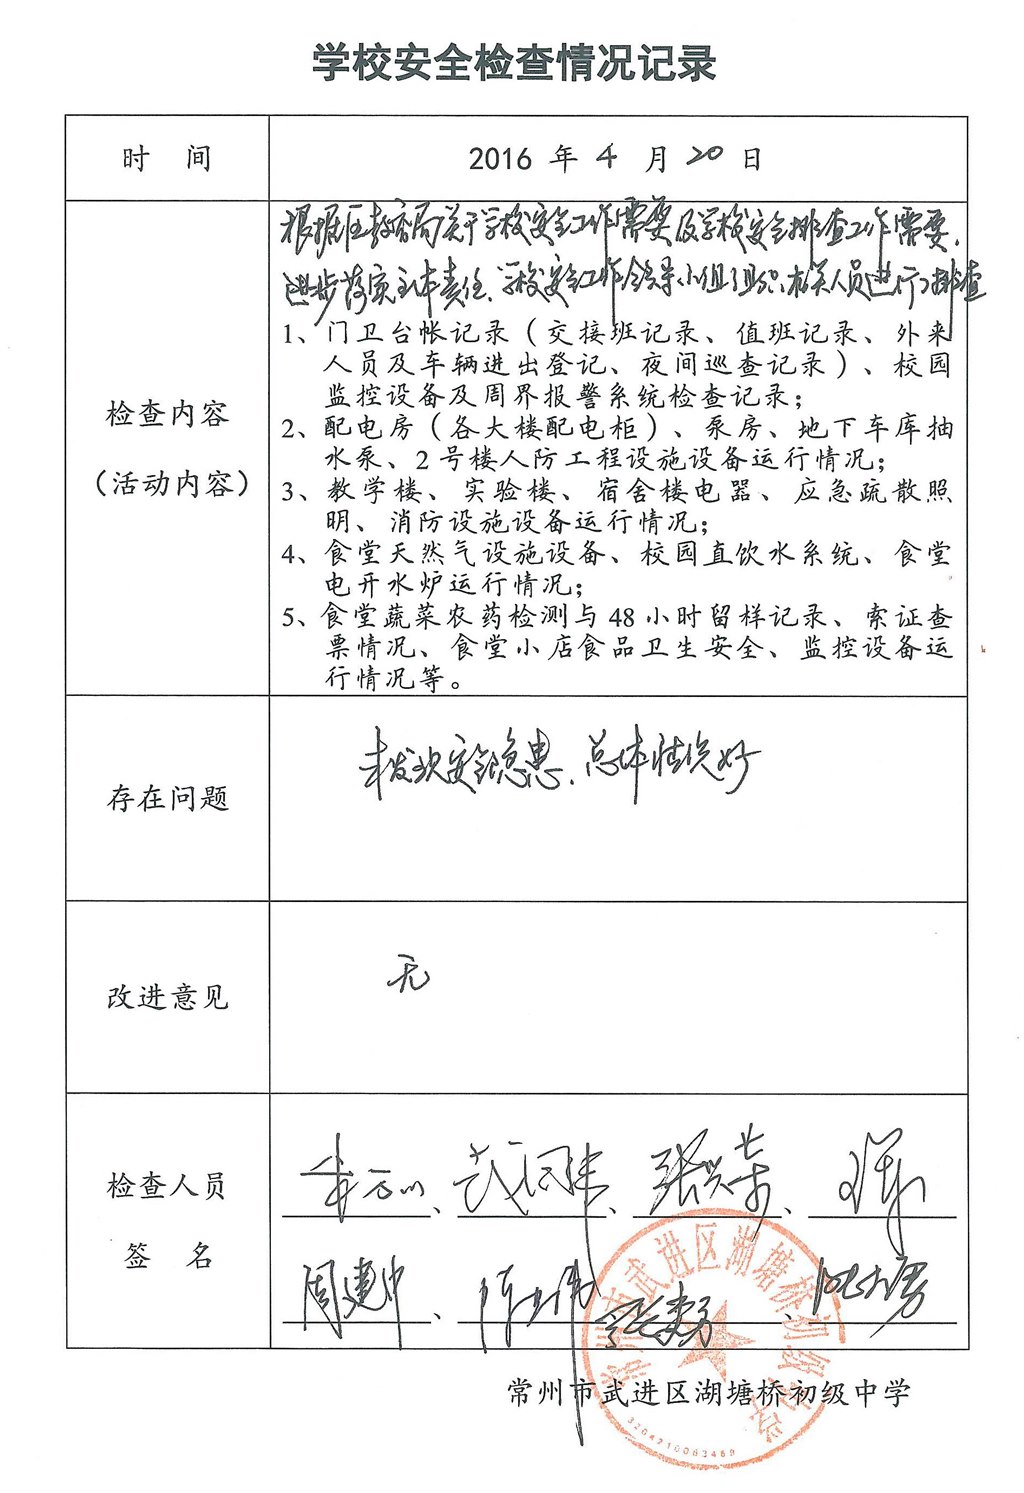 学校安全检查情况记录
时 间
2016 年 4 月 20 日
根据区教育局关于学校安全工作需要及学校安全排查工作需要,
进步落实主体责任、学校安全工作领导小组组织相关人员进行了排查
检查内容
（活动内容）
1、门卫台帐记录（交接班记录、值班记录、外来
人员及车辆进出登记、夜间巡查记录）、校园
监控设备及周界报警系统检查记录；
2、配电房（各大楼配电柜）、泵房、地下车库抽
水泵、2 号楼人防工程设施设备运行情况；
3、教学楼、实验楼、宿舍楼电器、应急疏散照
明、消防设施设备运行情况；
4、食堂天然气设施设备、校园直饮水系统、食堂
电开水炉运行情况；
5、食堂蔬菜农药检测与 48 小时留样记录、索证查
票情况、食堂小店食品卫生安全、监控设备运
行情况等。
存在问题
未发现安全隐患、总体情况好
改进意见
无
检查人员
签 名
张兴荣
周建中
常州市武进区湖塘桥初级中学
常州市武进区湖塘桥初级中学
3204210063469